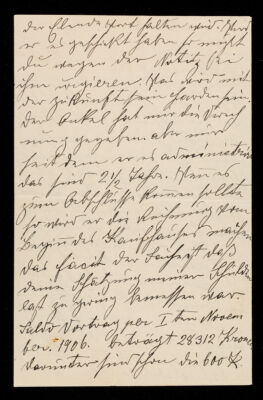 der Elende Wort halten wird. Wird
er es geschickt haben so mußt
Du wegen der Notiz bei
ihm urgieren. Das wird mit
der Zukunft sein
der Onkel hat mir die
gegeben aber nur
seit dem er es administrirt
das sind 2½ Jahre. Wenn es
zum Abschlusse kommen sollte
so wird er die Rechnung vom
Beginn des Kaufhauses machen
das Facit der Sache ist daß
deine Schätzung meiner Schulden
last zu gering bemessen war
Saldo Vortrag per 1ten Novem
ber. 1906. beträgt 28312 Krone
darunter sind schon die 600 K